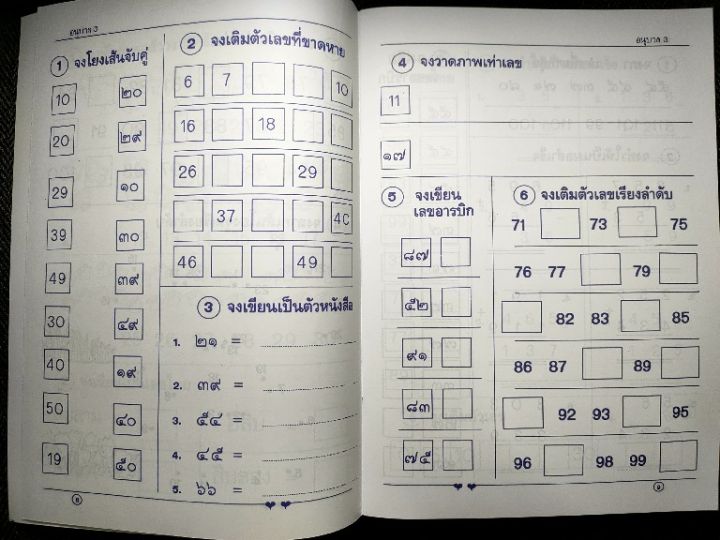 อนุบาล 3
1 จงโยงเส้นจับคู่
10 ๒๐
20 ๒๙
29 ๑๐
39 ๓๐
49 ๓๙
30 ๔๙
40 ๑๙
50 ๔๐
19 ๕๐
2 จงเติมตัวเลขที่ขาดหาย
6 7 10
16 18
26 29
37 40
46 49
3 จงเขียนเป็นตัวหนังสือ
1. ๒๑ =
2. ๓๙ =
3. ๕๔ =
4. ๔๕ =
5. ๖๖ =
๘
อนุบาล 3
4 จงวาดภาพเท่าเลข
11
๑๗
5 จงเขียน
เลขอารบิก
๘๗
๕๒
๙๑
๘๓
๗๕
6 จงเติมตัวเลขเรียงลำดับ
71 73 75
76 77 79
82 83 85
86 87 89
92 93 95
96 98 99
๑